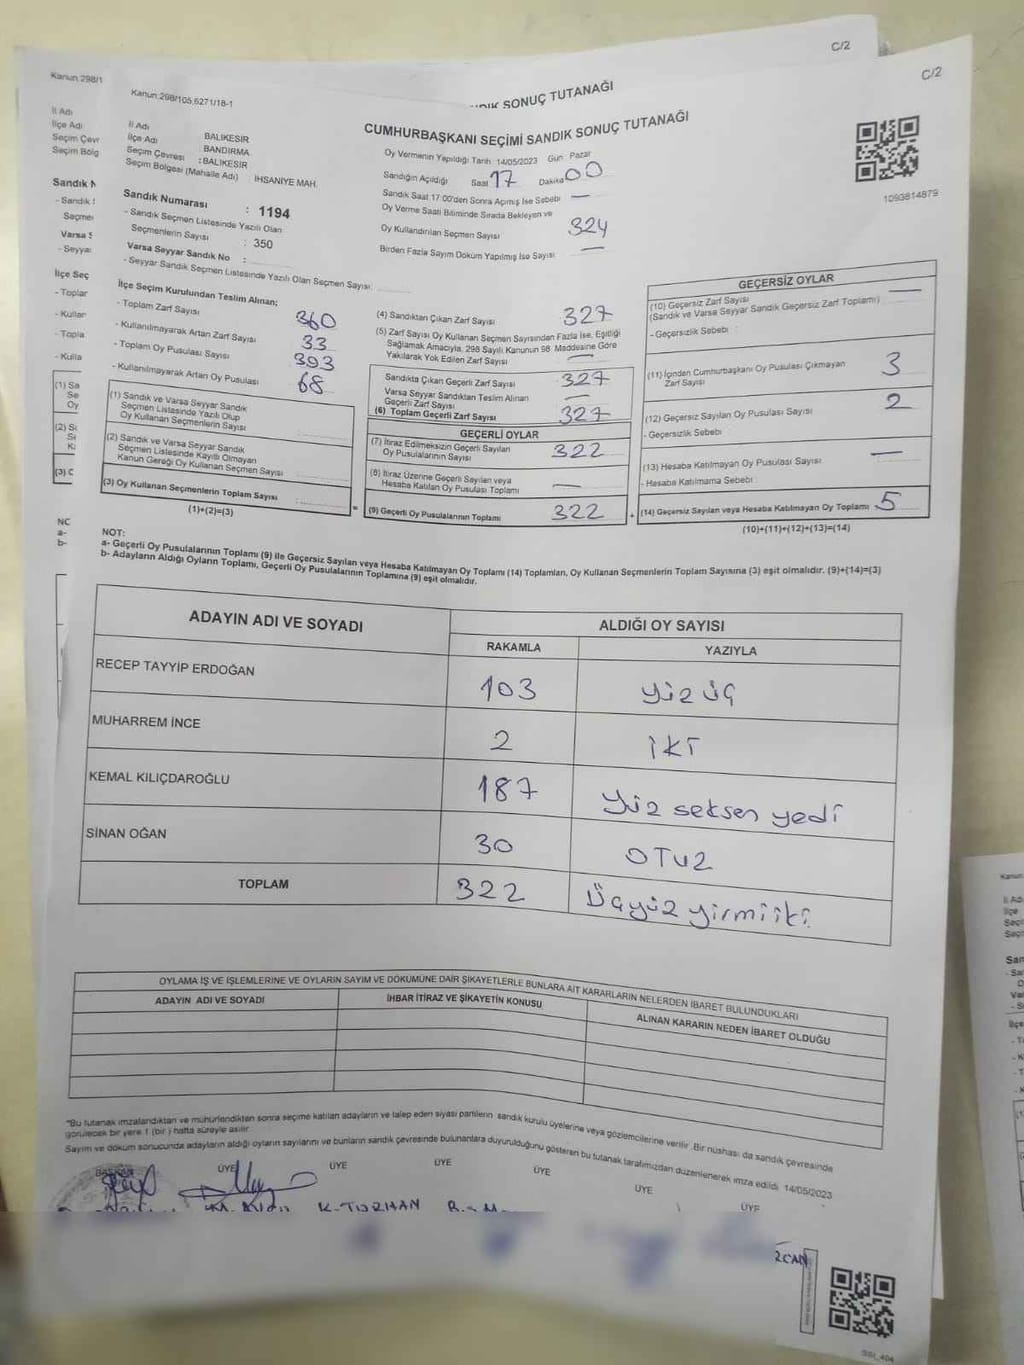 C/2
Kanun:298/1
NDIK SONUÇ TUTANAĞI
C/2
Kanun:298/105,6271/18-1
CUMHURBAŞKANI SEÇİMİ SANDIK SONUÇ TUTANAĞI
İl Adı BALIKESİR
İlçe Adı BANDIRMA
Seçim Çevresi : BALIKESİR
Seçim Bölgesi (Mahalle Adı) : İHSANİYE MAH.
Sandık Numarası : 1194
- Sandık Seçmen Listesinde Yazılı Olan
Seçmenlerin Sayısı : 350
Varsa Seyyar Sandık No :
- Seyyar Sandık Seçmen Listesinde Yazılı Olan Seçmen Sayısı:
Oy Vermenin Yapıldığı Tarih: 14/05/2023 Gün Pazar
Sandığın Açıldığı Saat 17 Dakika 00
Sandık Saat 17:00'den Sonra Açılmış İse Sebebi —
Oy Verme Saati Bitiminde Sırada Bekleyen ve
Oy Kullandırılan Seçmen Sayısı 324
Birden Fazla Sayım Döküm Yapılmış İse Sayısı —
1093814879
İlçe Seçim Kurulundan Teslim Alınan;
- Toplam Zarf Sayısı 360
- Kullanılmayarak Artan Zarf Sayısı 33
- Toplam Oy Pusulası Sayısı 393
- Kullanılmayarak Artan Oy Pusulası 68
(1) Sandık ve Varsa Seyyar Sandık
Seçmen Listesinde Yazılı Olup
Oy Kullanan Seçmenlerin Sayısı
(2) Sandık ve Varsa Seyyar Sandık
Seçmen Listesinde Kayıtlı Olmayan
Kanun Gereği Oy Kullanan Seçmen Sayısı
(3) Oy Kullanan Seçmenlerin Toplam Sayısı
(1)+(2)=(3)
(4) Sandıktan Çıkan Zarf Sayısı 327
(5) Zarf Sayısı Oy Kullanan Seçmen Sayısından Fazla İse, Eşitliği
Sağlamak Amacıyla, 298 Sayılı Kanunun 98. Maddesine Göre
Yakılarak Yok Edilen Zarf Sayısı —
Sandıkta Çıkan Geçerli Zarf Sayısı 327
Varsa Seyyar Sandıktan Teslim Alınan
Geçerli Zarf Sayısı —
(6) Toplam Geçerli Zarf Sayısı 327
GEÇERLİ OYLAR
(7) İtiraz Edilmeksizin Geçerli Sayılan
Oy Pusulalarının Sayısı 322
(8) İtiraz Üzerine Geçerli Sayılan veya
Hesaba Katılan Oy Pusulası Toplamı —
(9) Geçerli Oy Pusulalarının Toplamı 322
GEÇERSİZ OYLAR
(10) Geçersiz Zarf Sayısı —
(Sandık ve Varsa Seyyar Sandık Geçersiz Zarf Toplamı)
- Geçersizlik Sebebi :
(11) İçinden Cumhurbaşkanı Oy Pusulası Çıkmayan
Zarf Sayısı 3
(12) Geçersiz Sayılan Oy Pusulası Sayısı 2
- Geçersizlik Sebebi
(13) Hesaba Katılmayan Oy Pusulası Sayısı —
- Hesaba Katılmama Sebebi :
(14) Geçersiz Sayılan veya Hesaba Katılmayan Oy Toplamı 5
(10)+(11)+(12)+(13)=(14)
NOT:
a- Geçerli Oy Pusulalarının Toplamı (9) ile Geçersiz Sayılan veya Hesaba Katılmayan Oy Toplamı (14) Toplamları, Oy Kullanan Seçmenlerin Toplam Sayısına (3) eşit olmalıdır. (9)+(14)=(3)
b- Adayların Aldığı Oyların Toplamı, Geçerli Oy Pusulalarının Toplamına (9) eşit olmalıdır.
ADAYIN ADI VE SOYADI
ALDIĞI OY SAYISI
RAKAMLA YAZIYLA
RECEP TAYYİP ERDOĞAN 103 yüz üç
MUHARREM İNCE 2 iKi
KEMAL KILIÇDAROĞLU 187 yüz seksen yedi
SİNAN OĞAN 30 OTUZ
TOPLAM 322 Üçyüz yirmi iki
OYLAMA İŞ VE İŞLEMLERİNE VE OYLARIN SAYIM VE DÖKÜMÜNE DAİR ŞİKAYETLERLE BUNLARA AİT KARARLARIN NELERDEN İBARET BULUNDUKLARI
ADAYIN ADI VE SOYADI
İHBAR İTİRAZ VE ŞİKAYETİN KONUSU
ALINAN KARARIN NEDEN İBARET OLDUĞU
*Bu tutanak imzalandıktan ve mühürlendikten sonra seçime katılan adayların ve talep eden siyasi partilerin sandık kurulu üyelerine veya gözlemcilerine verilir. Bir nüshası da sandık çevresinde
görülecek bir yere 1 (bir) hafta süreyle asılır.
Sayım ve döküm sonucunda adayların aldığı oyların sayılarını ve bunların sandık çevresinde bulunanlara duyurulduğunu gösteren bu tutanak tarafımızdan düzenlenerek imza edildi. 14/05/2023
BAŞKAN ÜYE ÜYE ÜYE ÜYE ÜYE ÜYE
K. TURHAN